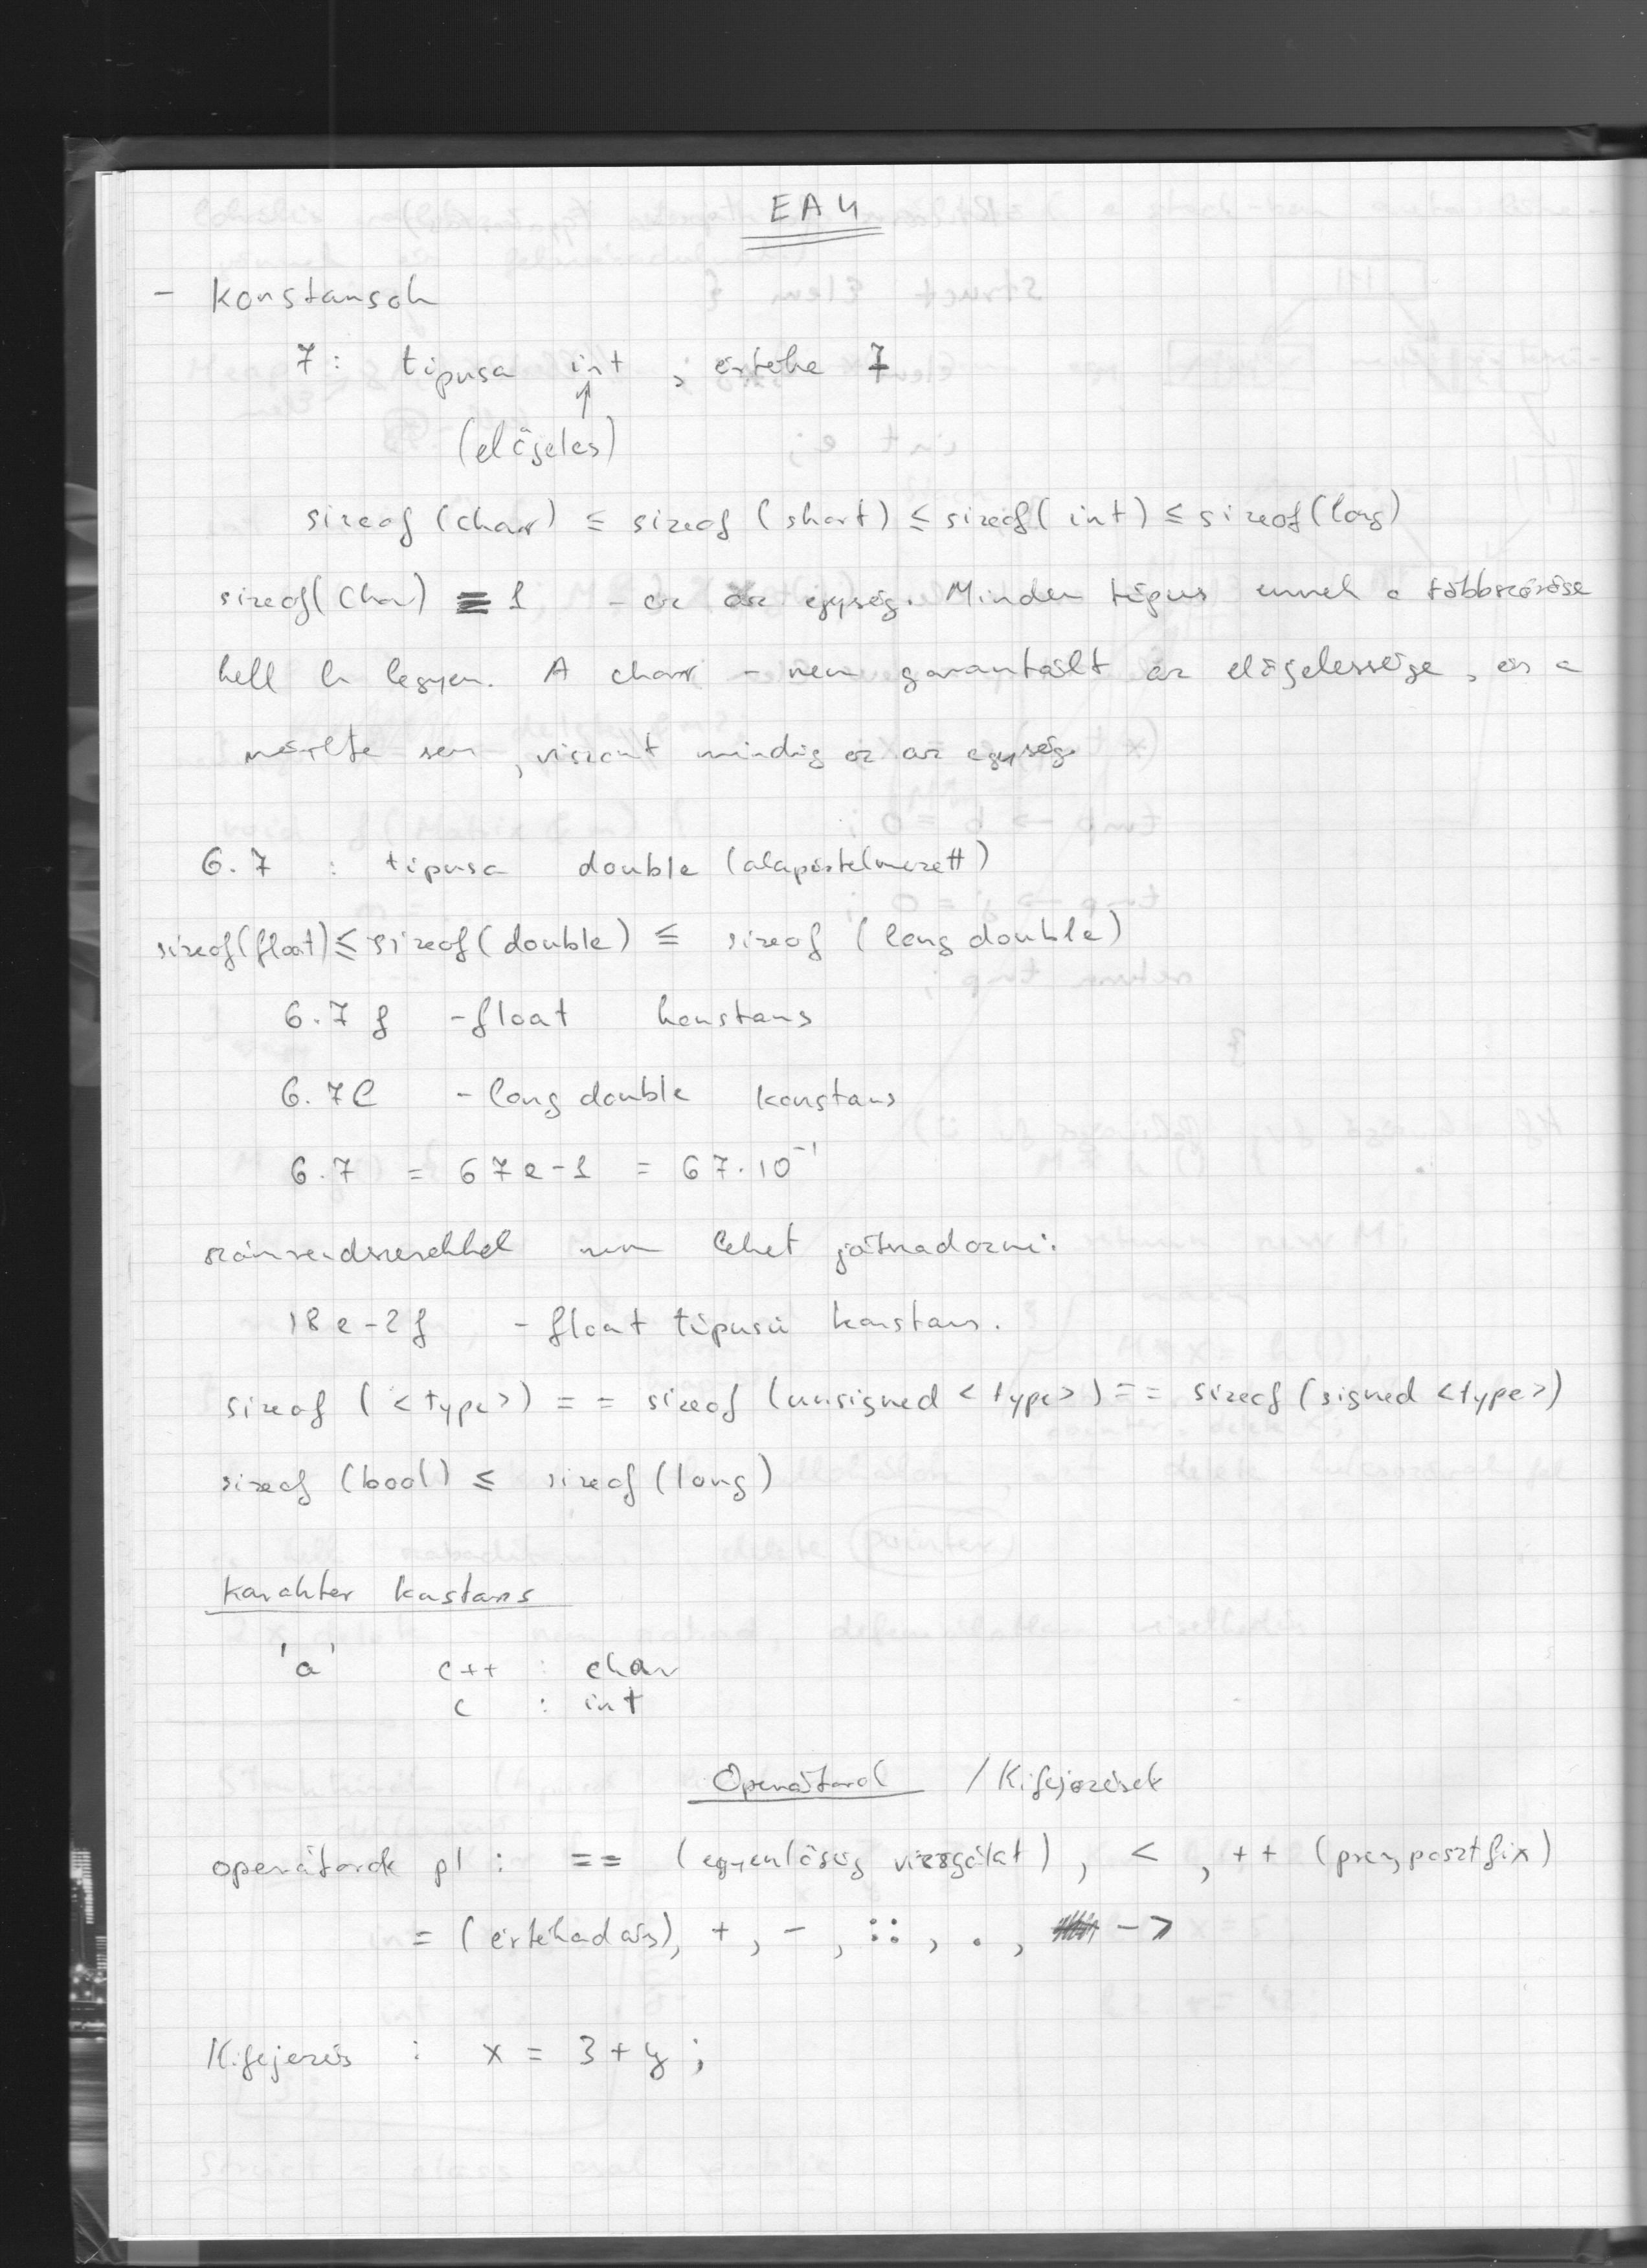 EA4
- Konstansok
7: típusa int, értéke 7
(előjeles)
sizeof (char) ≤ sizeof (short) ≤ sizeof( int) ≤ sizeof(long)
sizeof(char) = 1 - ez az egység. Minden típus ennek a többszöröse
kell h legyen. A char - nem garantált az előjelessége, és a
mérete sem, viszont mindig ez az egység.
6.7 : típusa double (alapértelmezett)
sizeof(float) ≤ sizeof(double) ≤ sizeof (long double)
6.7 f - float konstans
6.7l - long double konstans
6.7 = 67e-1 = 67·10⁻¹
számrendszerekkel nem lehet játszadozni.
18e-2f - float típusú konstans.
sizeof (<type>) == sizeof (unsigned <type>) == sizeof (signed <type>)
sizeof (bool) ≤ sizeof (long)
Karakter kostans
'a' c++ : char
c : int
Operátorok / Kifejezések
operátorok pl : == (egyenlőség vizsgálat), <, ++ (pre, posztfix)
= (értékadás), +, -, ::, ., ->
Kifejezés : x = 3 + y ;